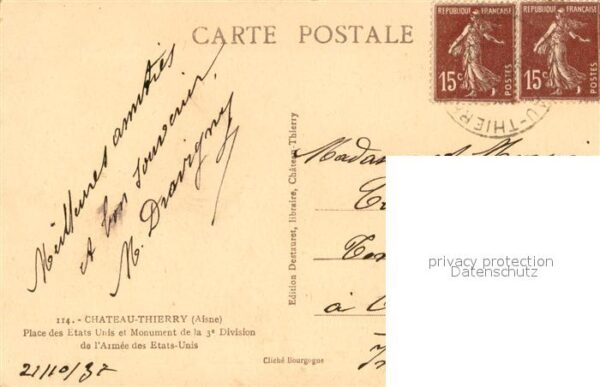 CARTE POSTALE
REPUBLIQUE FRANÇAISE
15c
POSTES
REPUBLIQUE FRANÇAISE
15c
POSTES
U-THIER
Meilleures amitiés
et bon souvenir,
M. Dravigny
Edition Destauret, libraire, Château-Thierry
Madame et
à
privacy protection
Datenschutz
114. - CHATEAU-THIERRY (Aisne)
Place des Etats Unis et Monument de la 3e Division
de l'Armée des Etats-Unis
Cliché Bourgogne
21/10/37